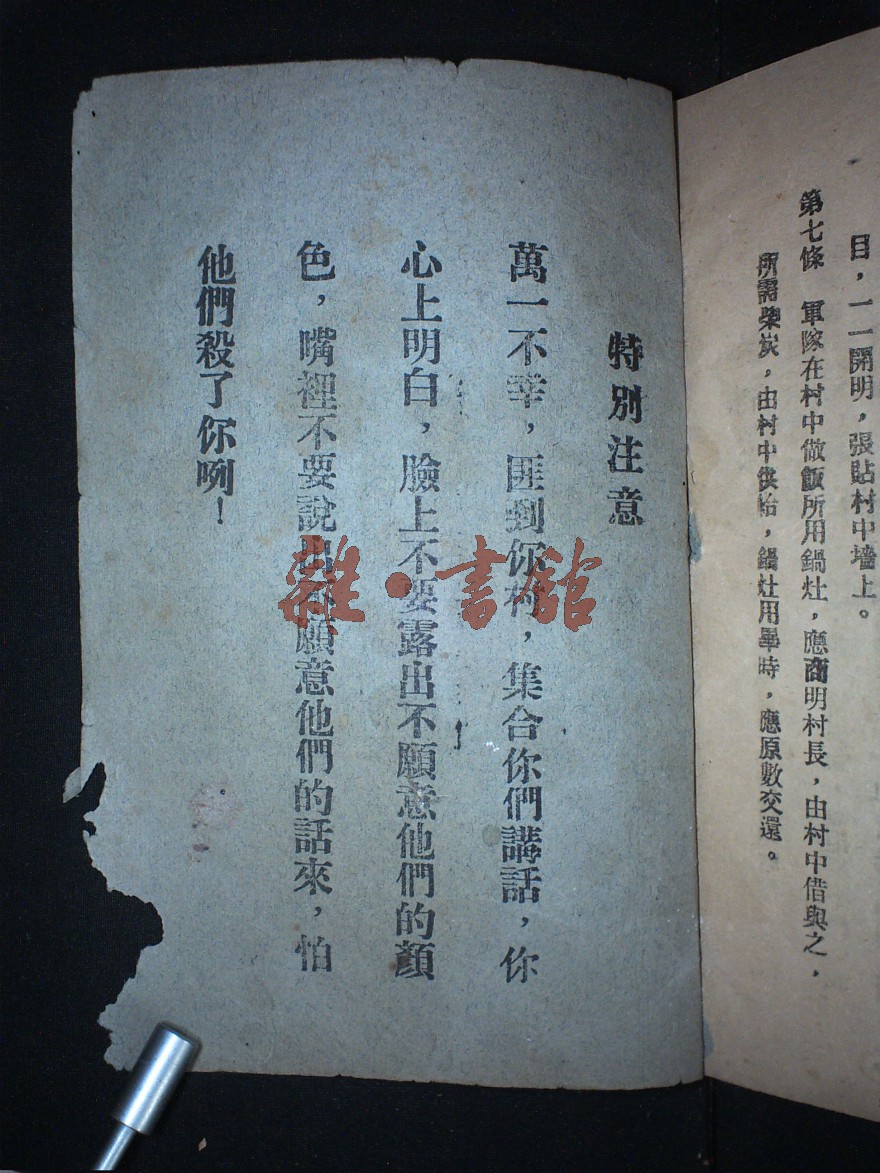 目，一一開明，張貼村中墻上。
第七條　軍隊在村中做飯所用鍋灶，應商明村長，由村中借與之，
所需柴炭，由村中供給，鍋灶用畢時，應原數交還。
特別注意
萬一不幸，匪到你村，集合你們講話，你
心上明白，臉上不要露出不願意他們的顏
色，嘴裡不要說出不願意他們的話來，怕
他們殺了你咧！
雜·書館